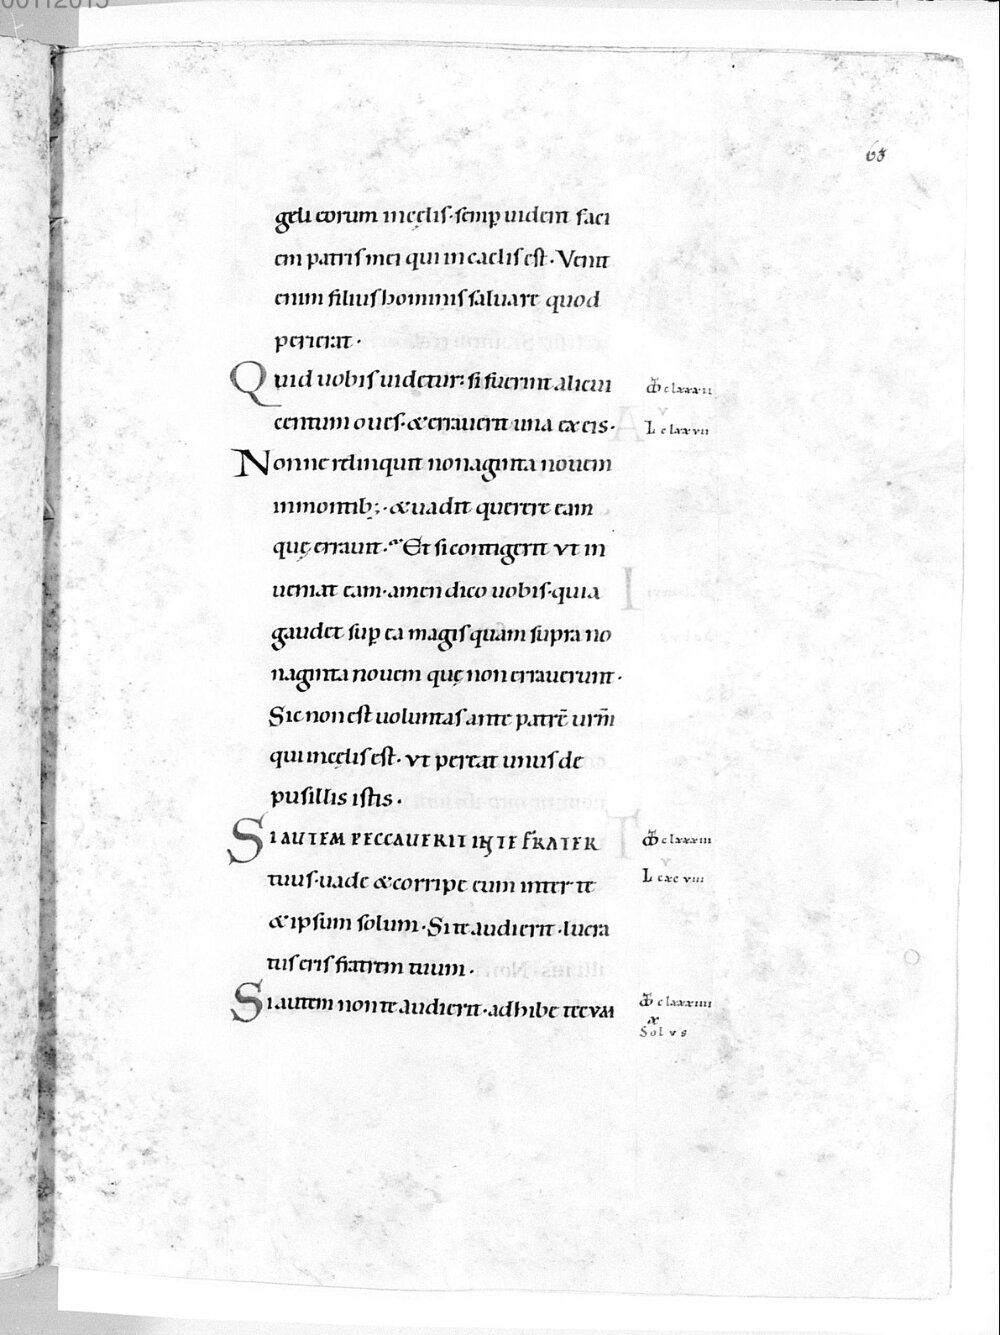 63
geli eorum in cęlis · semp̱ uident faci
em patris mei qui in caelis est · Venit
enim filius hominis saluare quod
perierat ·
Quid uobis uidetur: si fuerint alicui
centum oues · & errauerit una ex eis ·
Nonne relinquit nonaginta nouem
in montib; · & uadit querere eam
quę errauit · Et si contigerit ut in
ueniat eam · amen dico uobis · quia
gaudet sup̱ ea magis quam supra no
naginta nouem quę non errauerunt ·
Sic non est uoluntas ante patrē urm̄
qui in cęlis est · ut pereat unus de
pusillis istis ·
SI AUTEM PECCAUERIT IN TE FRATER
tuus · uade & corripe eum inter te
& ipsum solum · Si te audierit · lucra
tus eris fratrem tuum ·
Si autem non te audierit · adhibe tecum
clxxxii
v
L clxxvii
clxxxiii
v
L cxcviii
clxxxiiii
x
Solus